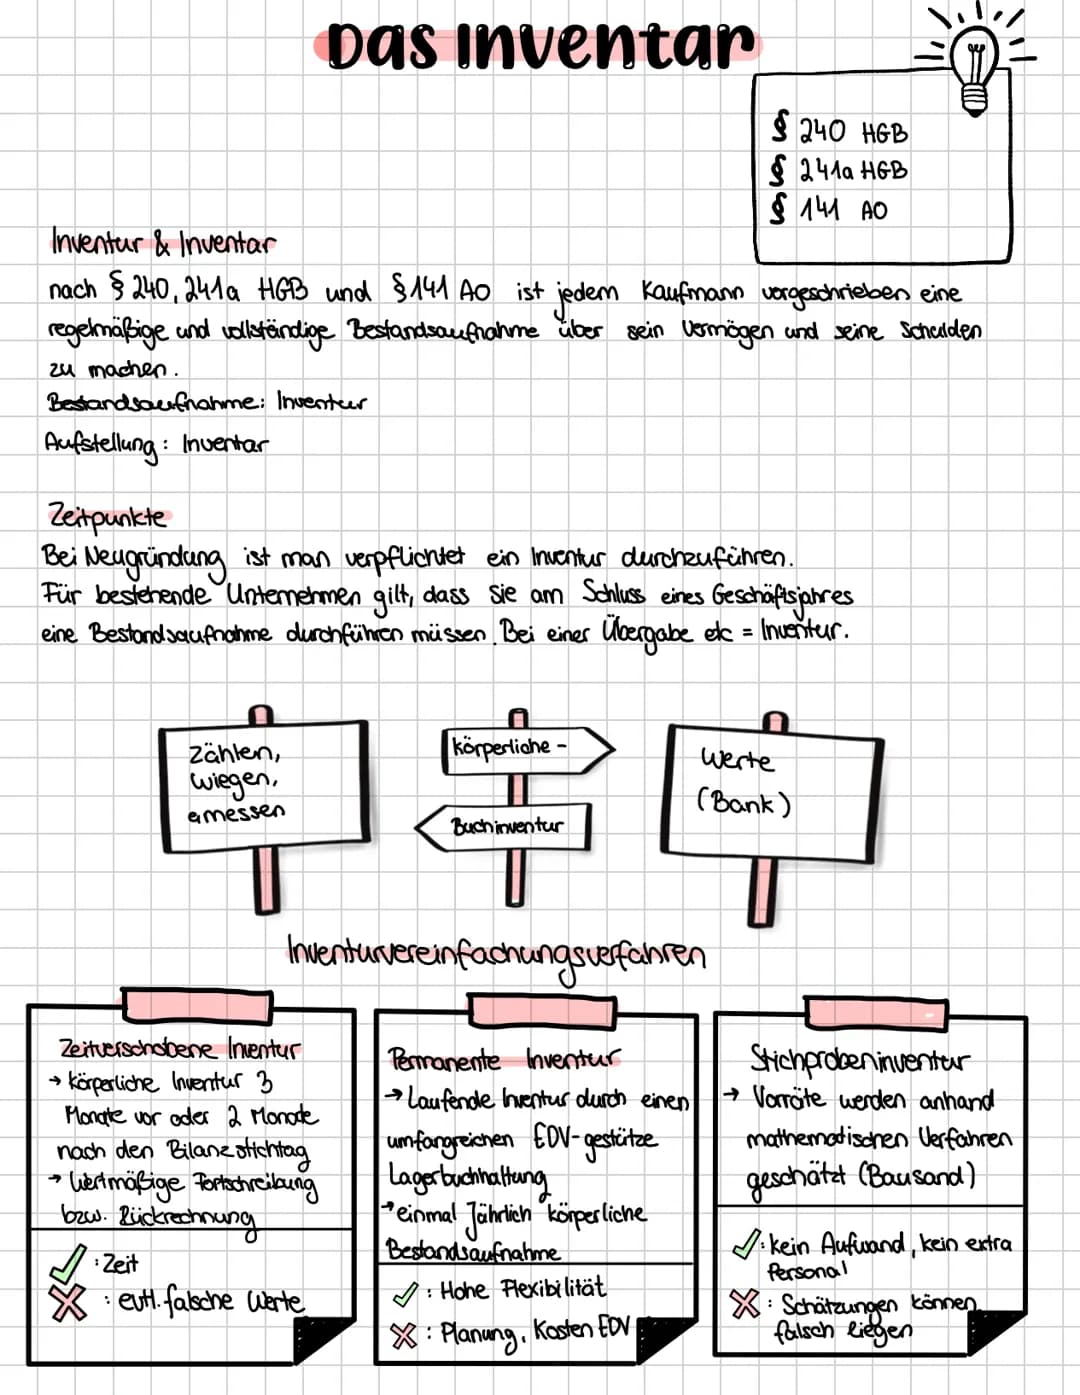 Das Inventar
§ 240 HGB
§ 241a HGB
§ 141 AO
Inventur & Inventar
nach § 240, 241a HGB und §141 AO ist jedem Kaufmann vorgeschrieben eine
regelmäßige und vollständige Bestandsaufnahme über sein Vermögen und seine Schulden
zu machen.
Bestandsaufnahme: Inventur
Aufstellung: Inventar
Zeitpunkte
Bei Neugründung ist man verpflichtet ein Inventur durchzuführen.
Für bestehende Unternehmen gilt, dass sie am Schluss eines Geschäftsjahres
eine Bestandsaufnahme durchführen müssen. Bei einer Übergabe etc = Inventur.
Zählen,
wiegen,
&messen
körperliche -
Buchinventur
Werte
(Bank)
Inventurvereinfachungsverfahren
Zeitverschobene Inventur
→ körperliche Inventur 3
Monate vor oder 2 Monate
nach den Bilanzstichtag
→ Wertmäßige Fortschreibung
bzw. Rückrechnung
✓: Zeit
X: evtl. falsche Werte
Permanente Inventur
→ Laufende Inventur durch einen
umfangreichen EDV-gestütze
Lagerbuchhaltung
→ einmal Jährlich körperliche
Bestandsaufnahme
✓: Hohe Flexibilität
X: Planung, Kosten EDV
Stichprobeninventur
→ Vorräte werden anhand
mathematischen Verfahren
geschätzt (Bausand)
✓: kein Aufwand, kein extra
Personal
X: Schätzungen können
falsch liegen